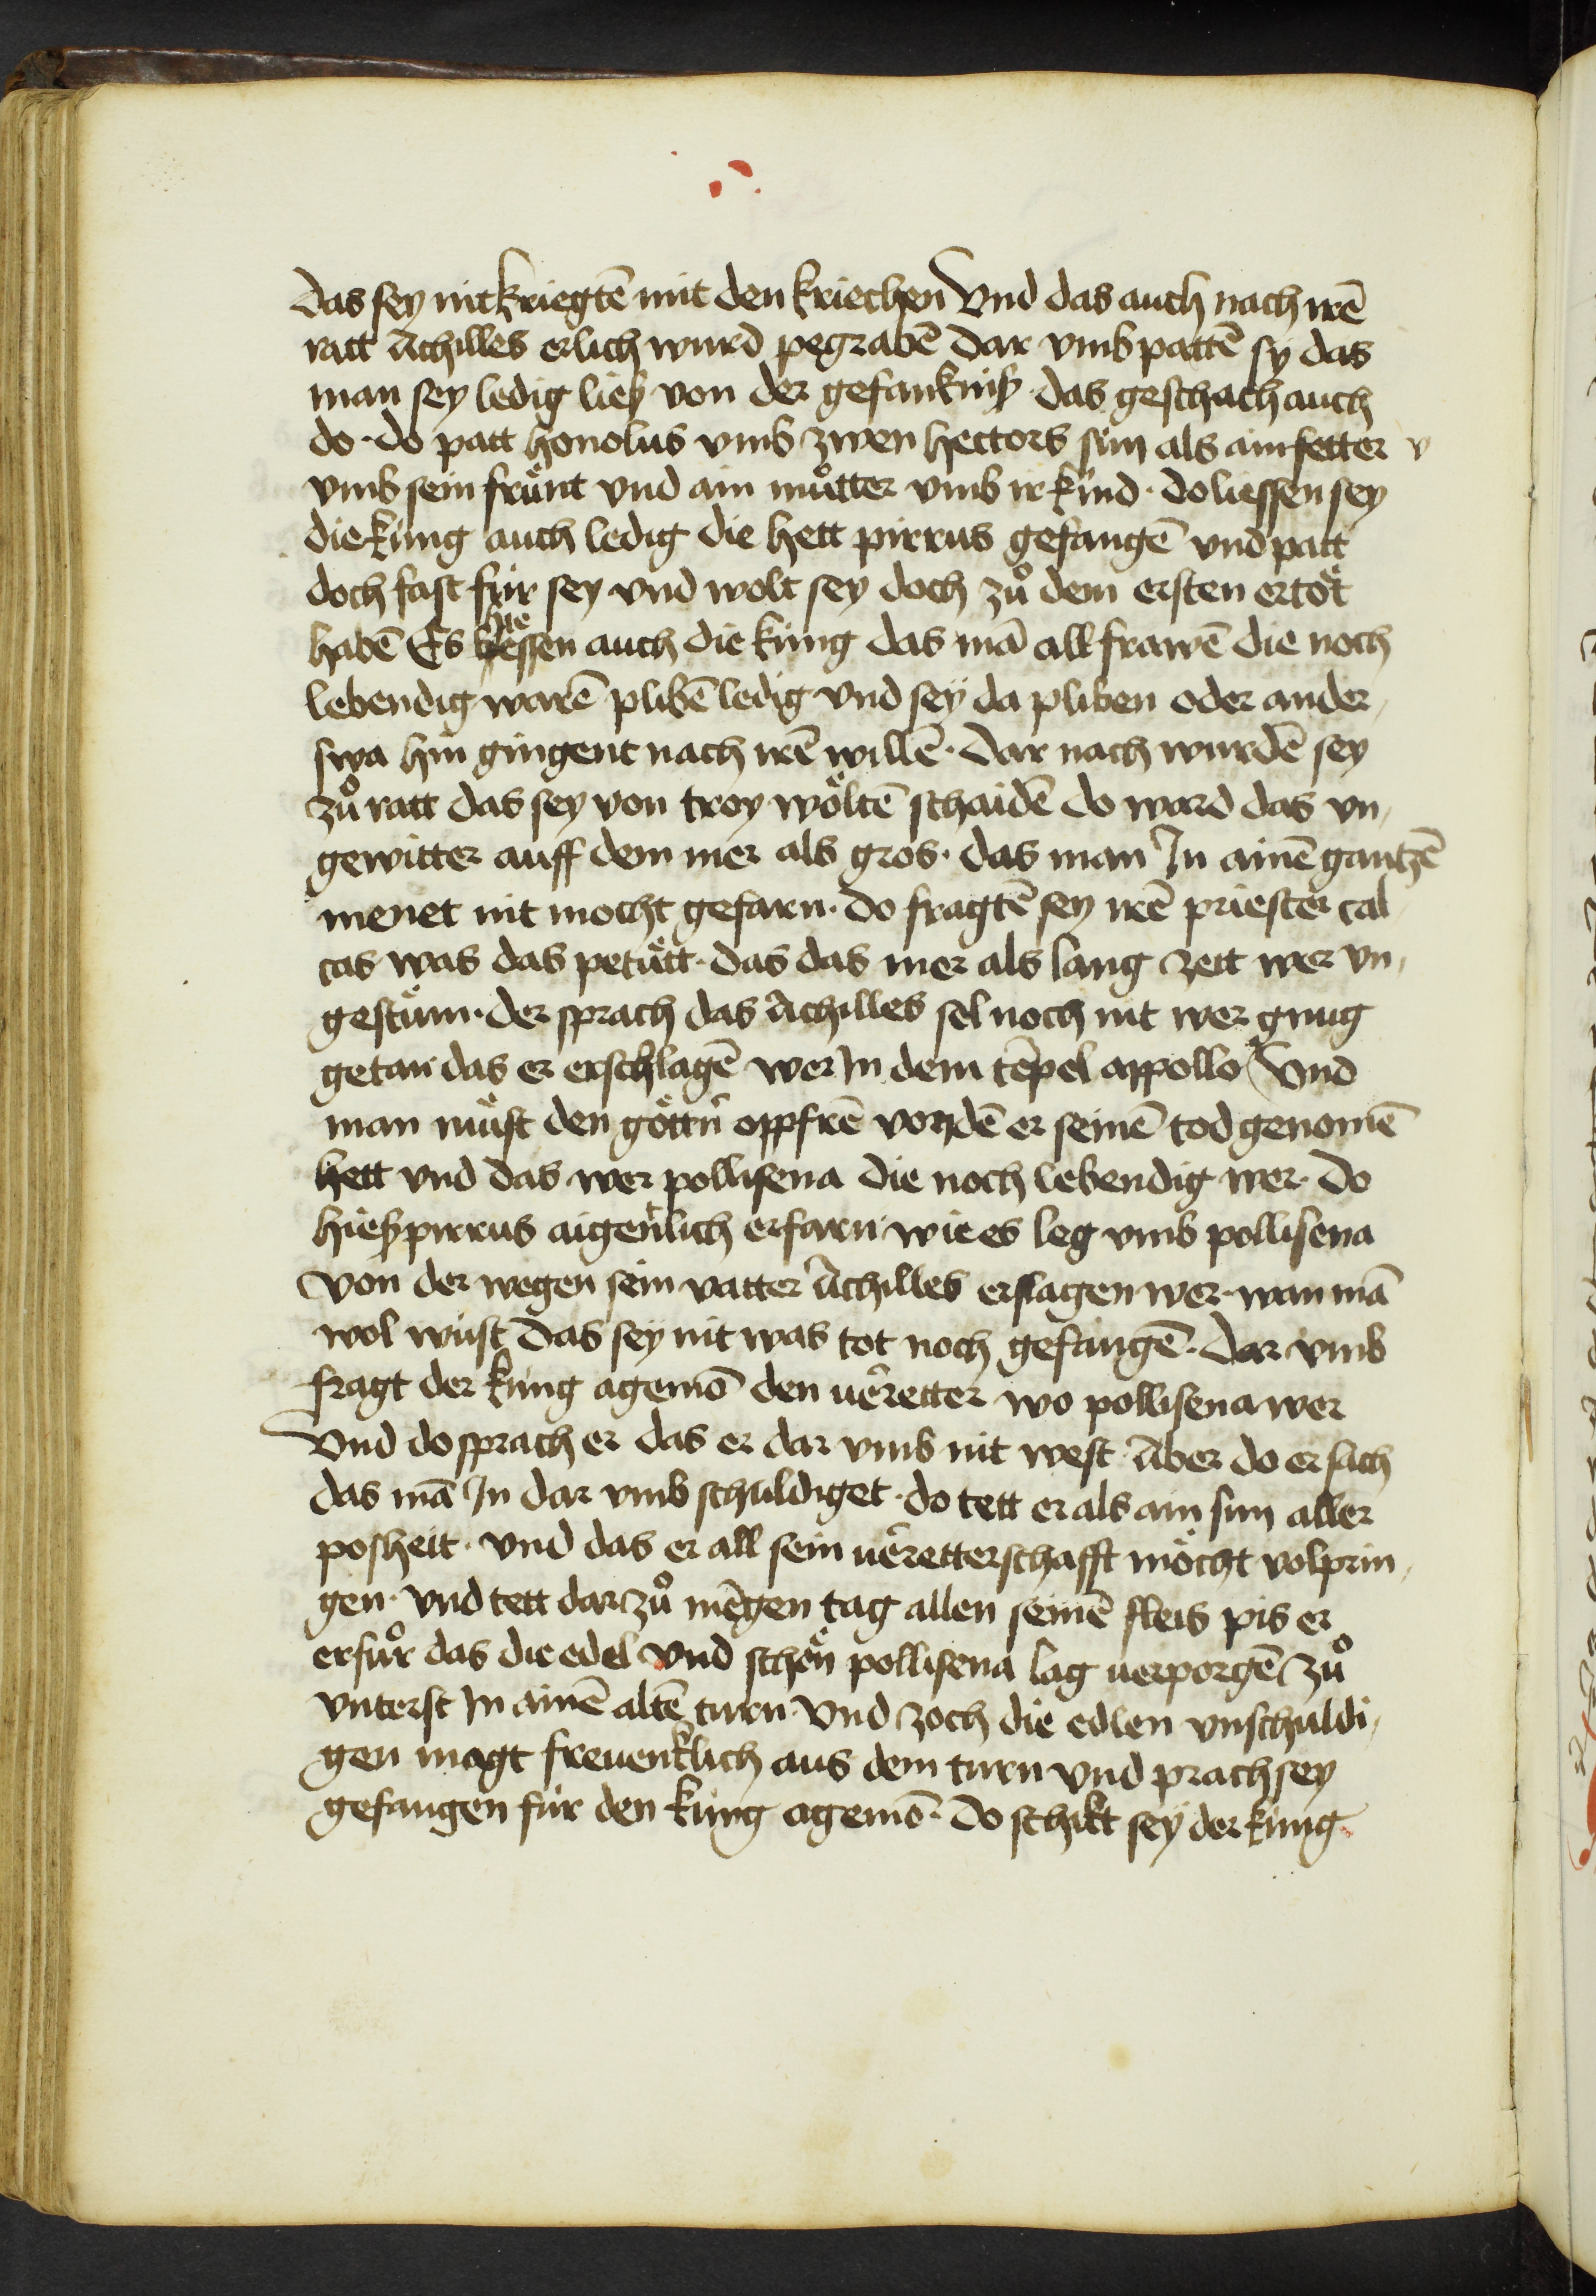 das sey nit kriegtē mit den kriechen Vnd das auch nach irē
ratt Achilles erlich wurd pegrabē Dar vmb pattē sy das
man sey ledig ließ von der gefanknß · das geschach auch
do · do patt honolus vmb zwen hectors sün als ain fetter v
vmb sein frünt vnd ain muͦtter vmb ir kind · do liessen sey
die küng auch ledig die hett pirrus gefangē vnd patt
doch fast für sey vnd wolt sey doch zuͦ dem ersten ertöt
habē Es hiessen auch die küng das mā all frawē die noch
lebendig warē plibē ledig vnd sey da pliben oder ander,
swa hin gingent nach irē willē · Dar nach wurdē sey
zuͦ ratt das sey von troy wöltē schaidē do ward das vn,
gewitter auff dem mer als gros · das man Jn ainē gantzē
menet nit mocht gefarn · do fragtē sey irē priester cal
cas was das petütt · das das mer als lang zett wer vn,
gestüm · der sprach das Achilles sel noch nit wer gnug
getan das er erschlagē wer Jn dem tēpel appollo Vnd
man müst den göttn̄ oppfrē von dē er seinē tod genomē
hett vnd das wer pollisena die noch lebendig wer · do
hieß pirrus aigenlich erfarn wie es leg vmb pollisena
Von der wegen sein vatter Achilles erslagen wer · wan mā
wol wüst das sey nit was tot noch gefangē · Dar vmb
fragt der küng agemō den uerretter wo pollisena wer
Vnd do sprach er das er dar vmb nit west Aber do er sach
das mā Jn dar vmb schuldiget · do tett er als ain sun aller
posheit · vnd das er all sein uerretterschafft möcht volprin,
gen · vnd tett dar zuͦ mēgen tag allen seinē fleis pis er
erfuͦr das die edel vnd schön pollisena lag uerporgē zuͦ
vnterst Jn ainē altē turn · Vnd zoch die edlen vnschuldi,
gen magt freuenklich aus dem turn vnd prach sey
gefangen für den küng agemō · Do schikt sey der küng